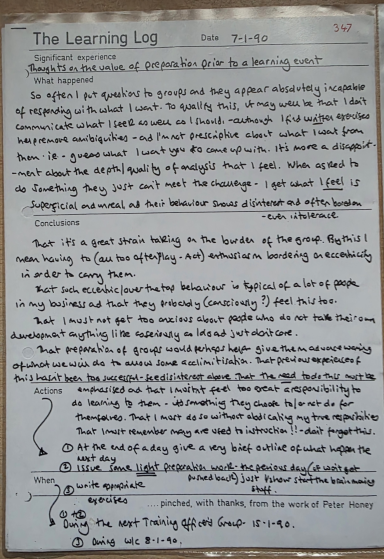 347
The Learning Log Date 7-1-90
Significant experience
Thoughts on the value of preparation prior to a learning event
What happened
So often I put questions to groups and they appear absolutely incapable
of responding with what I want. To qualify this, it may well be that I don't
communicate what I seek as well as I should - although I find written exercises
help remove ambiguities - and I'm not prescriptive about what I want from
them - ie - guess what I want you to come up with. It's more a disappoint-
-ment about the depth/quality of analysis that I feel. When asked to
do something they just can't meet the challenge - I get what I feel is
superficial and unreal and their behaviour shows disinterest and often boredom
- even intolerance.
Conclusions
That it's a great strain taking on the burden of the group. By this I
mean having to (all too often play-Act) enthusiasm bordering on eccentricity
in order to carry them.
That such eccentric/over the top behaviour is typical of a lot of people
in my business and that they probably (consciously?) feel this too.
That I must not get too anxious about people who do not take their own
development anything like as seriously as I do and just don't care.
That preparation of groups would perhaps help give them advance warning
of what we will do to allow some acclimitisation. That previous experience of
this hasn't been too successful - see disinterest above That the need to do this must be
emphasised and that I mustn't feel too great a responsibility to
Actions
do learning to them - it's something they choose to/or not do for
themselves. That I must do so without abdicating my true responsibilities
That I must remember many are used to instruction!! - don't forget this.
① At the end of a day give a very brief outline of what happens the
next day
② Issue some light preparation work - the previous day (if won't get
pushed back) just ½ hour start the brain moving
stuff.
When
③ write appropriate
exercises
.... pinched, with thanks, from the work of Peter Honey
① + ② During the next Training Officers Group - 15-1-90.
③ During w/c 8-1-90.